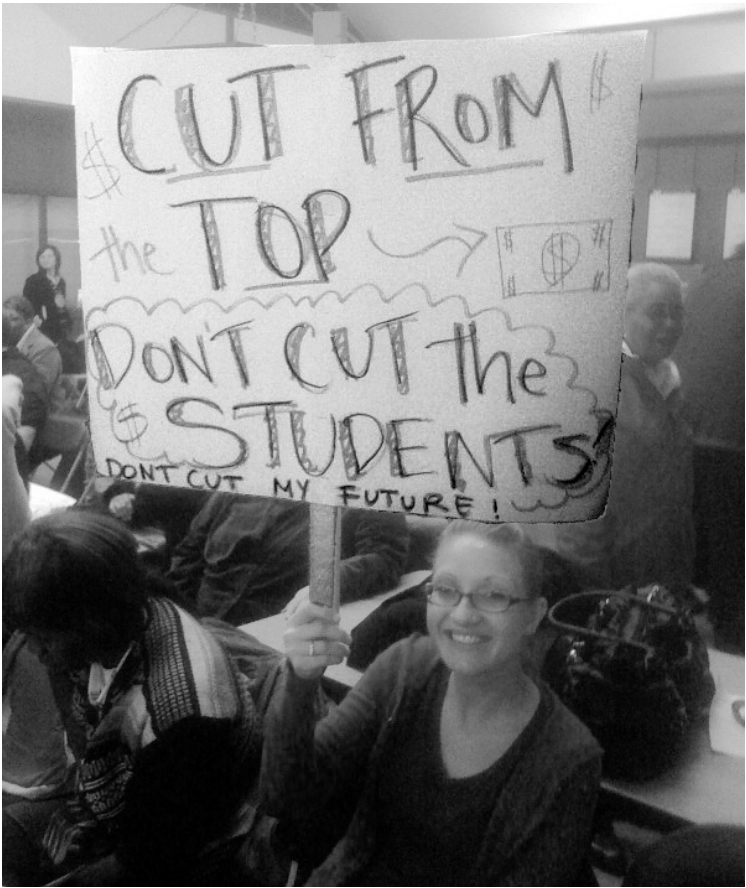 $ CUT FROM $
the TOP $ $ $ $ $
DON'T CUT the
$ STUDENTS!
DONT CUT MY FUTURE!